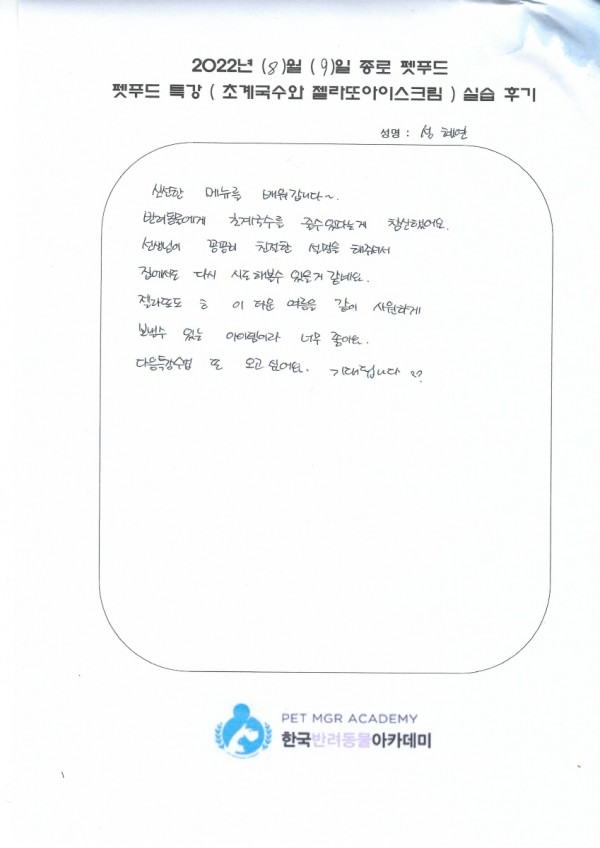 2022년 (8)월 (9)일 종로 펫푸드
펫푸드 특강 ( 초계국수와 젤라또아이스크림 ) 실습 후기
성명 : 성혜연
신선한 메뉴를 배워갑니다~.
반려동물에게 초계국수를 줄수있다는게 참신했어요.
선생님이 꼼꼼히 친절한 설명을 해주셔서
집에서도 다시 시도해볼수 있을거 같네요.
젤라또도 이 더운 여름을 같이 시원하게
보낼수 있는 아이템이라 너무 좋아요.
다음특강수업 또 오고 싶어요. 기대됩니다
PET MGR ACADEMY
한국반려동물아카데미